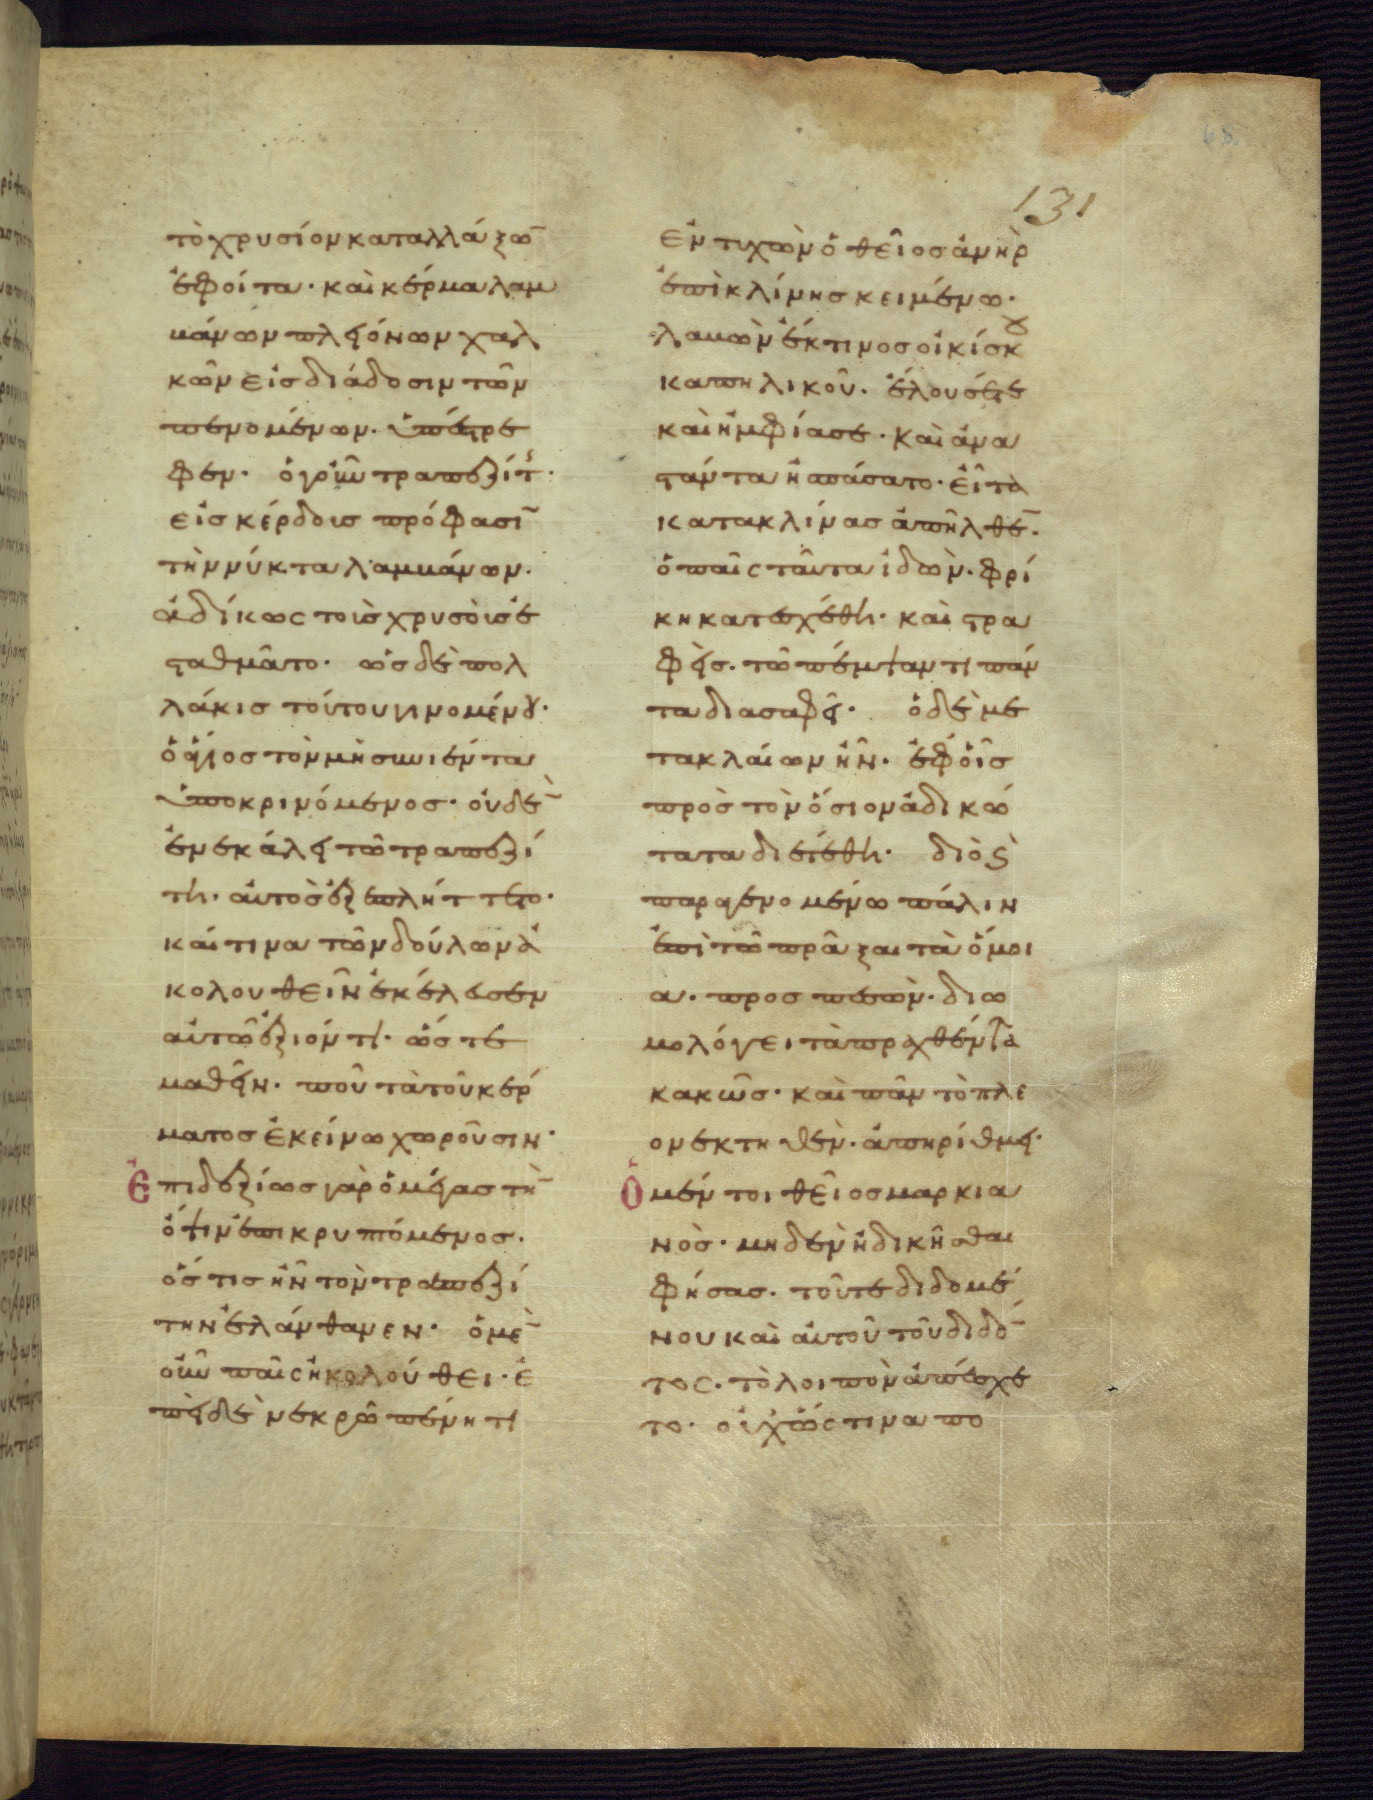 131
τὸ χρυσίον καταλλάξω̄
ἐφοίτα· καὶ κέρμα λαμ
βάνων πλειόνων χαλ
κῶν εἰς διάδοσιν τῶν
πενομένων. ὑπέστρε
φεν· ὁ γοῦν τραπεζίτ·
εἰς κέρδοις πρόφασῑ
τὴν νύκτα λαμβάνων.
ἀδίκως τοῖς χρυσοῖς ἐ
σταθμᾶτο· ὡς δὲ πολ
λάκις τούτου γινομένου·
ὁ ἅγιος τὸν μὴ συνιέντα
ὑποκρινόμενος· οὐδὲ̄
ἐνεκάλει τῶ τραπεζί
τη. αὐτὸς ἐξεπλήττετο·
καί τινα τῶν δούλων ἀ
κολουθεῖν ἐκέλευσεν
αὐτῶ ἐξιόντι· ὥστε
μαθεῖν. ποῦ τὰ τοῦ κέρ
ματος ἐκείνω χωροῦσιν·
Ἐπιδεξίως γὰρ ὁ μέγας τὴ̄
ὄψιν ἐπικρυπτόμενος.
ὅστις ἦν τὸν τραπεζί
την ἐλάνθανεν· ὁ μὲ̄
οὖν παῖς ἠκολούθει· ἐ
πεὶ δὲ νεκρῶ πένητι
ἐντυχὼν ὁ θεῖος ἀνὴρ
ἐπὶ κλίνης κειμένω.
λαβὼν ἔκ τινος οἰκίσκου
καπηλικοῦ. ἔλουσέ τε
καὶ ἠμφίασε· καὶ ἀνα
στάντα ἠσπάσατο· εἶτα
κατακλίνας ἀπῆλθε̄.
ὁ παῖς ταῦτα ἰδὼν. φρί
κη κατεσχέθη· καὶ στρα
φεὶς. τῶ πέμψαντι πάν
τα διασαφεῖ· ὁ δὲ με
τακλαίων ἦν· ἐφ οἷς
πρὸς τὸν ὅσιον ἀδικώ
τατα διετέθη· διὸ καὶ
παραγενομένω πάλιν
ἐπὶ τῶ πρᾶξαι τὰ ὅμοι
α. προσπεσὼν. διω
μολόγει τὰ πραχθέντα
κακῶς· καὶ πᾶν τὸ πλε
ονεκτηθὲν. ἀπηρίθμει·
Ὁ μέν τοι θεῖος μαρκια
νὸς· μηδὲν ἠδικῆσθαι
φήσας. τοῦτε διδομέ
νου καὶ αὐτοῦ τοῦ διδό̄
τος. τὸ λοιπὸν ἀπέσχε
το· οὐχ ὥς τινα πο